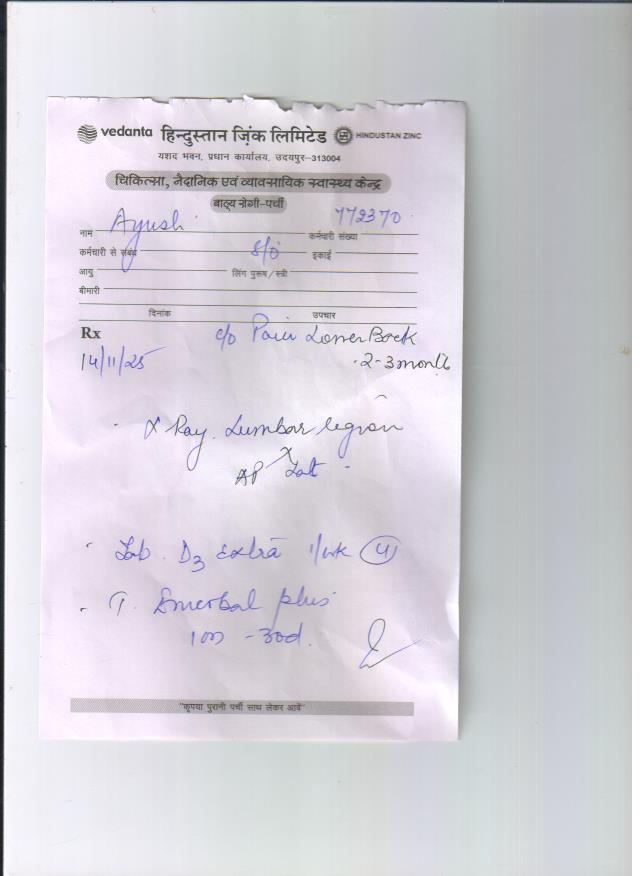 vedanta हिन्दुस्तान ज़िंक लिमिटेड HINDUSTAN ZINC
यशद भवन, प्रधान कार्यालय, उदयपुर–313004
चिकित्सा, नैदानिक एवं व्यावसायिक स्वास्थ्य केन्द्र
बाह्य रोगी-पर्ची
नाम Ayush कर्मचारी संख्या 772370
कर्मचारी से संबंध S/o इकाई
आयु लिंग पुरूष/स्त्री
बीमारी
दिनांक उपचार
Rx c/o Pain Lower Back
14/11/25 2-3 month
X Ray. Lumbar region
AP Lat
Tab. D3 Extra 1/wk 4
T. plus
1 - 30d.
"कृपया पुरानी पर्ची साथ लेकर आवें"